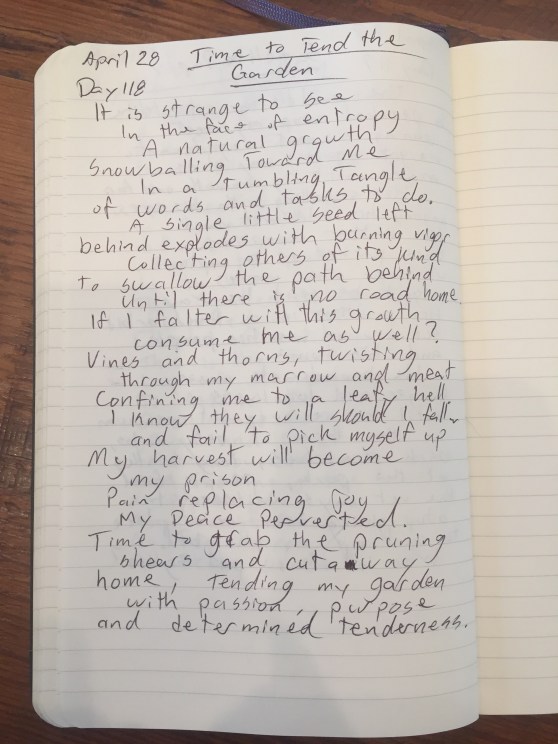 April 28 Time to Tend the
Garden
Day 118
It is strange to see
In the face of entropy
A natural growth
Snowballing Toward Me
In a Tumbling Tangle
of words and tasks to do.
A single little seed left
behind explodes with burning vigor
Collecting others of its kind
To swallow the path behind
Until there is no road home
If I falter will this growth
consume me as well?
Vines and thorns, twisting
through my marrow and meat
Confining me to a leafy hell
I know they will should I fall
and fail to pick myself up
My harvest will become
my prison
Pain replacing Joy
My Peace Perverted.
Time to grab the pruning
shears and cut away
home, Tending my garden
with passion, purpose
and determined tenderness.